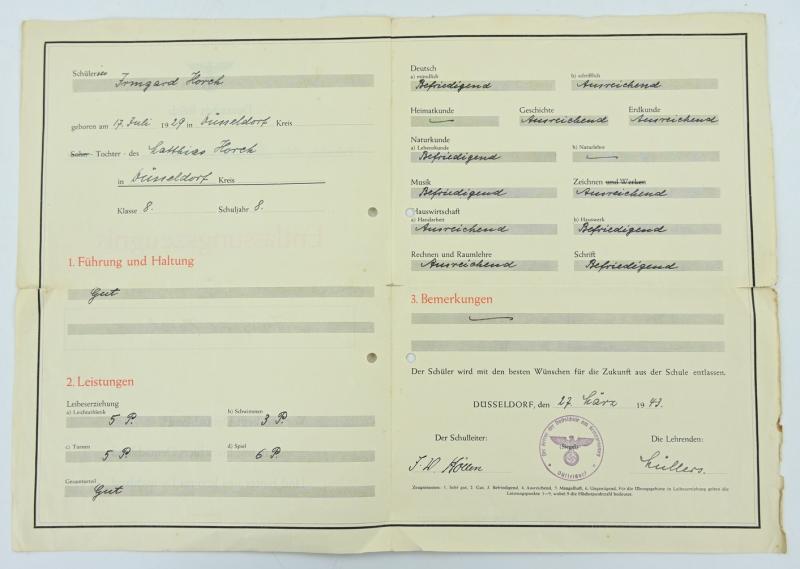 Schülerin Irmgard Horch
geboren am 17. Juli 1929 in Düsseldorf Kreis
Sohn - Tochter - des Matthias Horch
in Düsseldorf Kreis
Klasse 8. Schuljahr 8.
1. Führung und Haltung
Gut
2. Leistungen
Leibeserziehung
a) Leichtathletik b) Schwimmen
5 P. 3 P.
c) Turnen d) Spiel
5 P. 6 P.
Gesamturteil
Gut
Deutsch
a) mündlich b) schriftlich
Befriedigend Ausreichend
Heimatkunde Geschichte Erdkunde
Ausreichend Ausreichend
Naturkunde
a) Lebenskunde b) Naturlehre
Befriedigend
Musik Zeichnen und Werken
Befriedigend Ausreichend
Hauswirtschaft
a) Handarbeit b) Hauswerk
Ausreichend Befriedigend
Rechnen und Raumlehre Schrift
Ausreichend Befriedigend
3. Bemerkungen
Der Schüler wird mit den besten Wünschen für die Zukunft aus der Schule entlassen.
DÜSSELDORF, den 27. März 1943.
Der Schulleiter: (Siegel) Die Lehrenden:
Düsseldorf
Zeugnisnoten: 1. Sehr gut, 2. Gut, 3. Befriedigend, 4. Ausreichend, 5. Mangelhaft, 6. Ungenügend. Für die Übungsgebiete in Leibeserziehung gelten die
Leistungspunkte 1–9, wobei 9 die Höchstpunktzahl bedeutet.